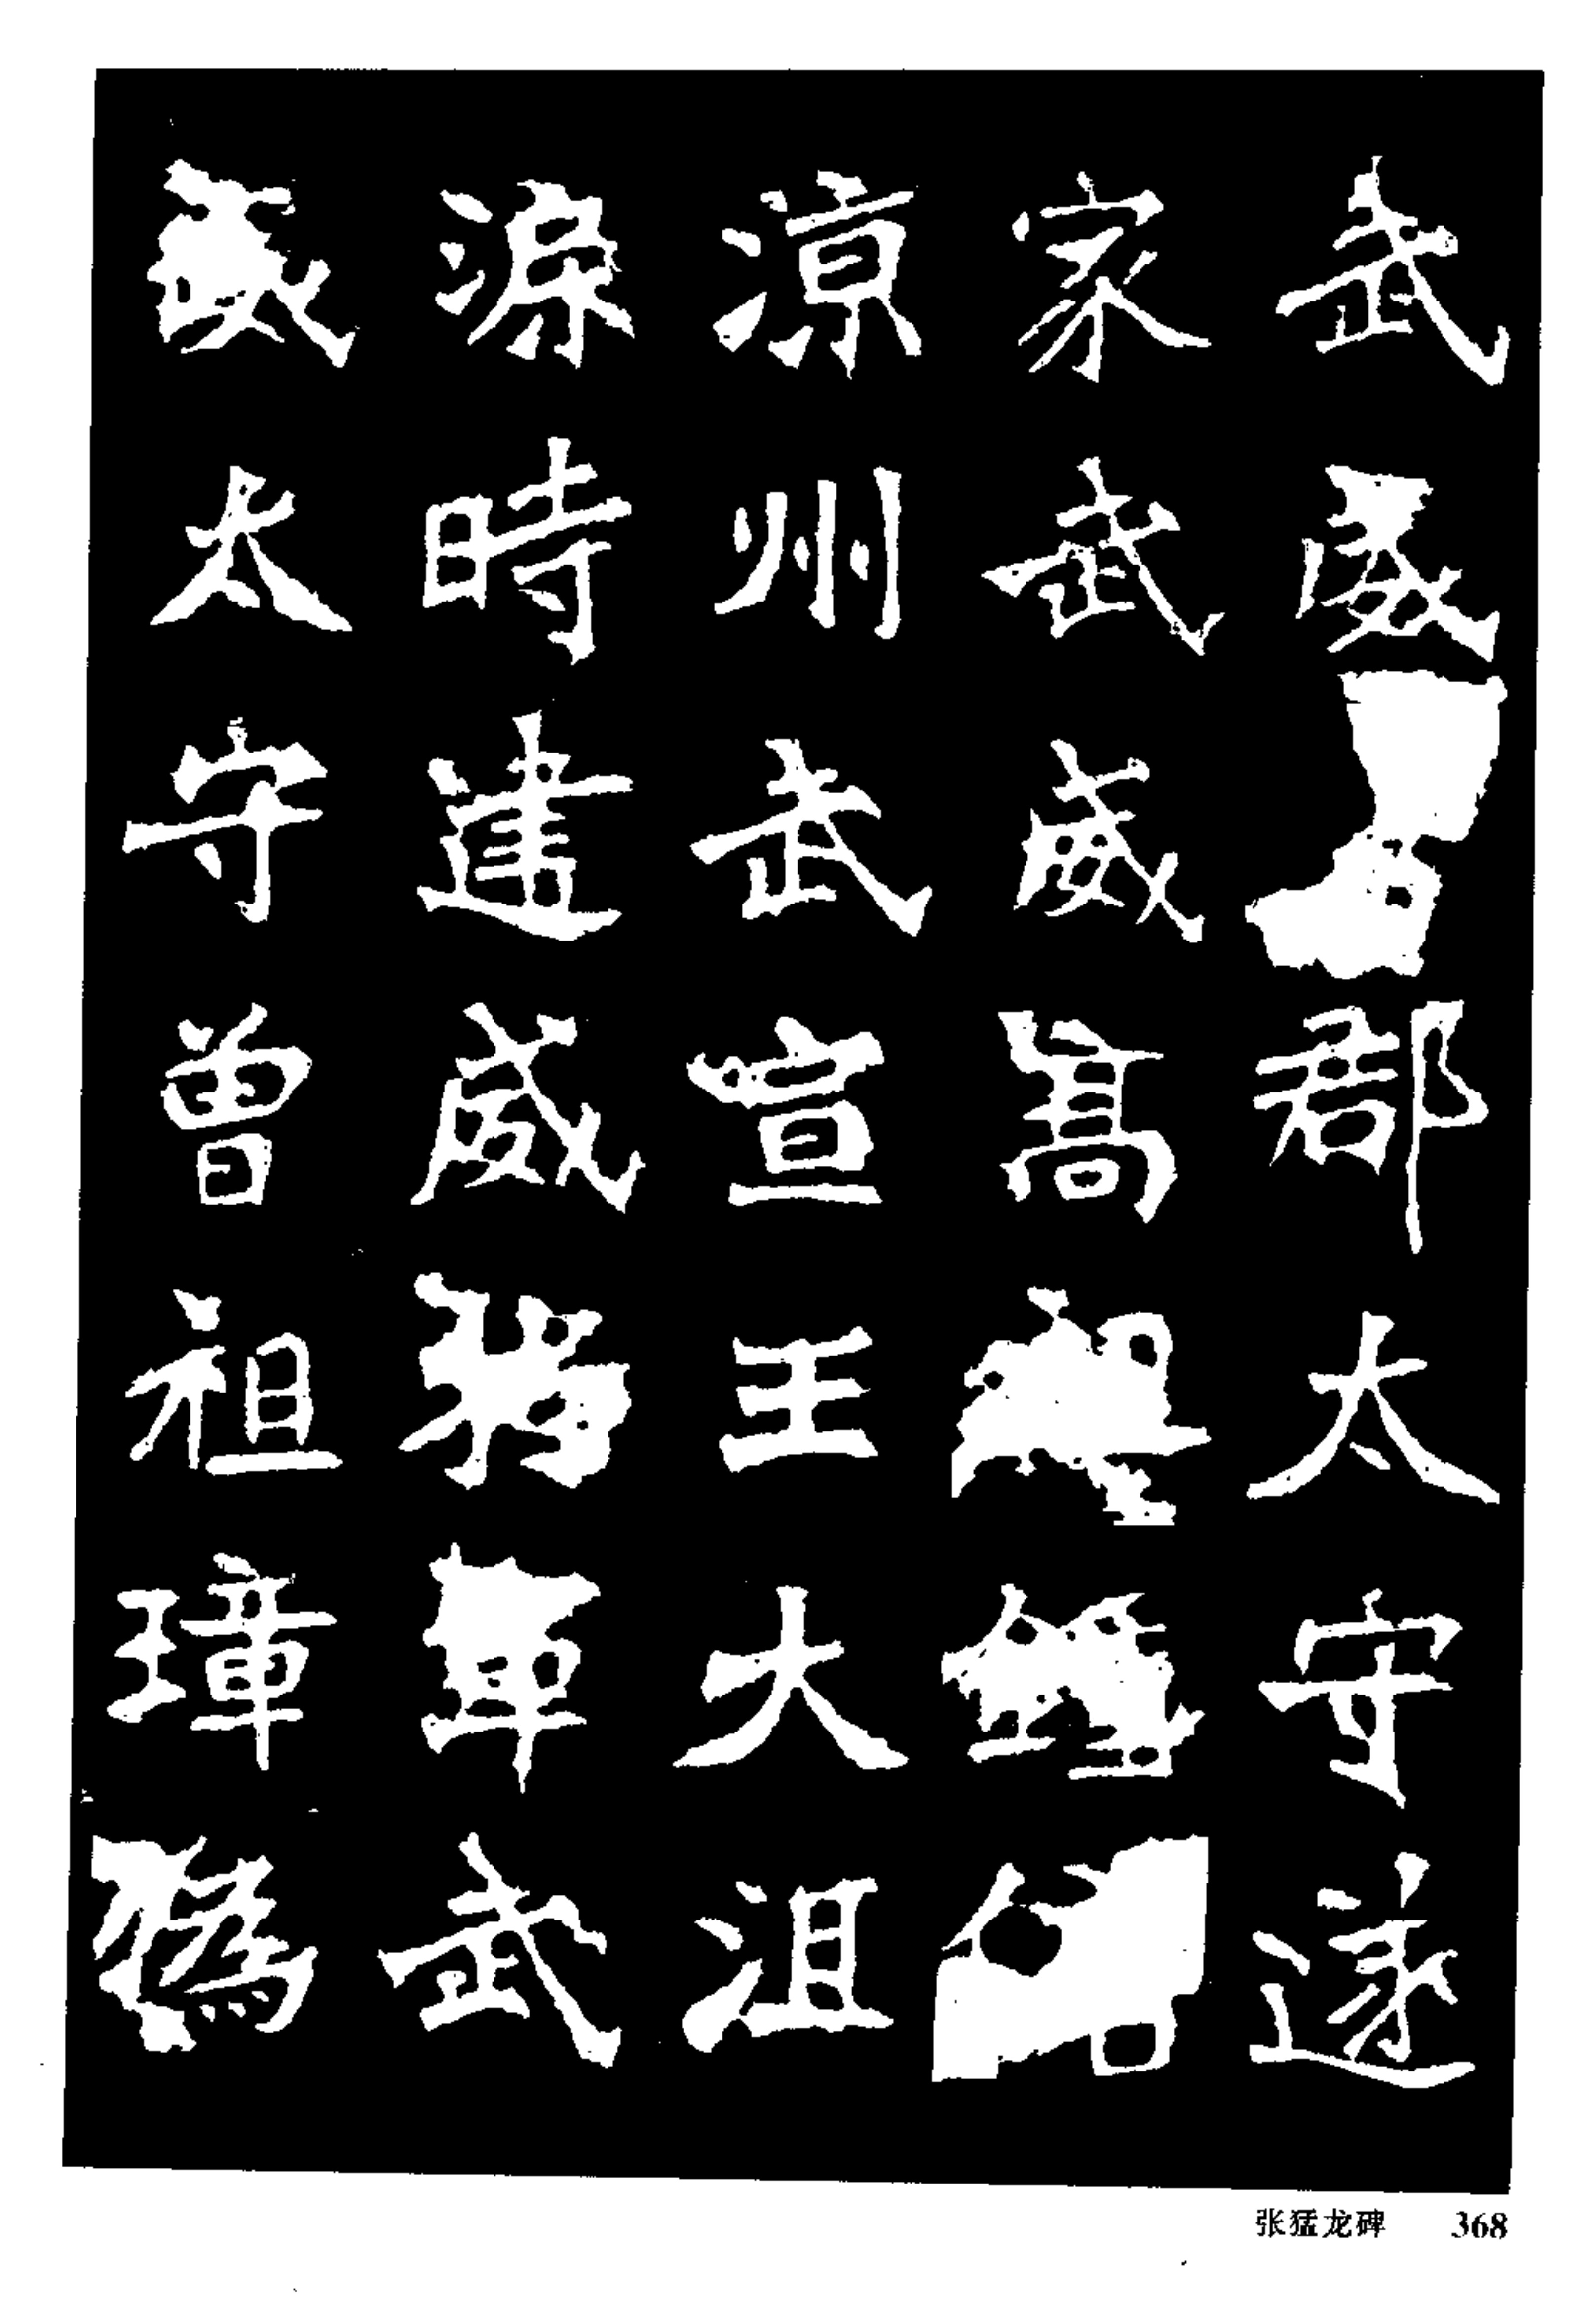 武威郡太守遂
家武威高祖鍾
涼州武宣王大沮
渠時建威將軍武
威太守曾祖璋偽
张猛龙碑 368